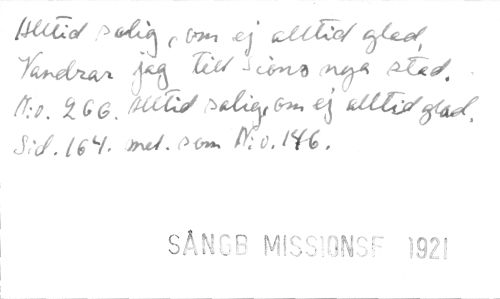 Alltid salig, om ej alltid glad,
Vandrar jag till Sions nya stad.
N:o. 266. Alltid salig, om ej alltid glad.
Sid. 164. mel. som N:o. 146.
SÅNGB MISSIONSF 1921